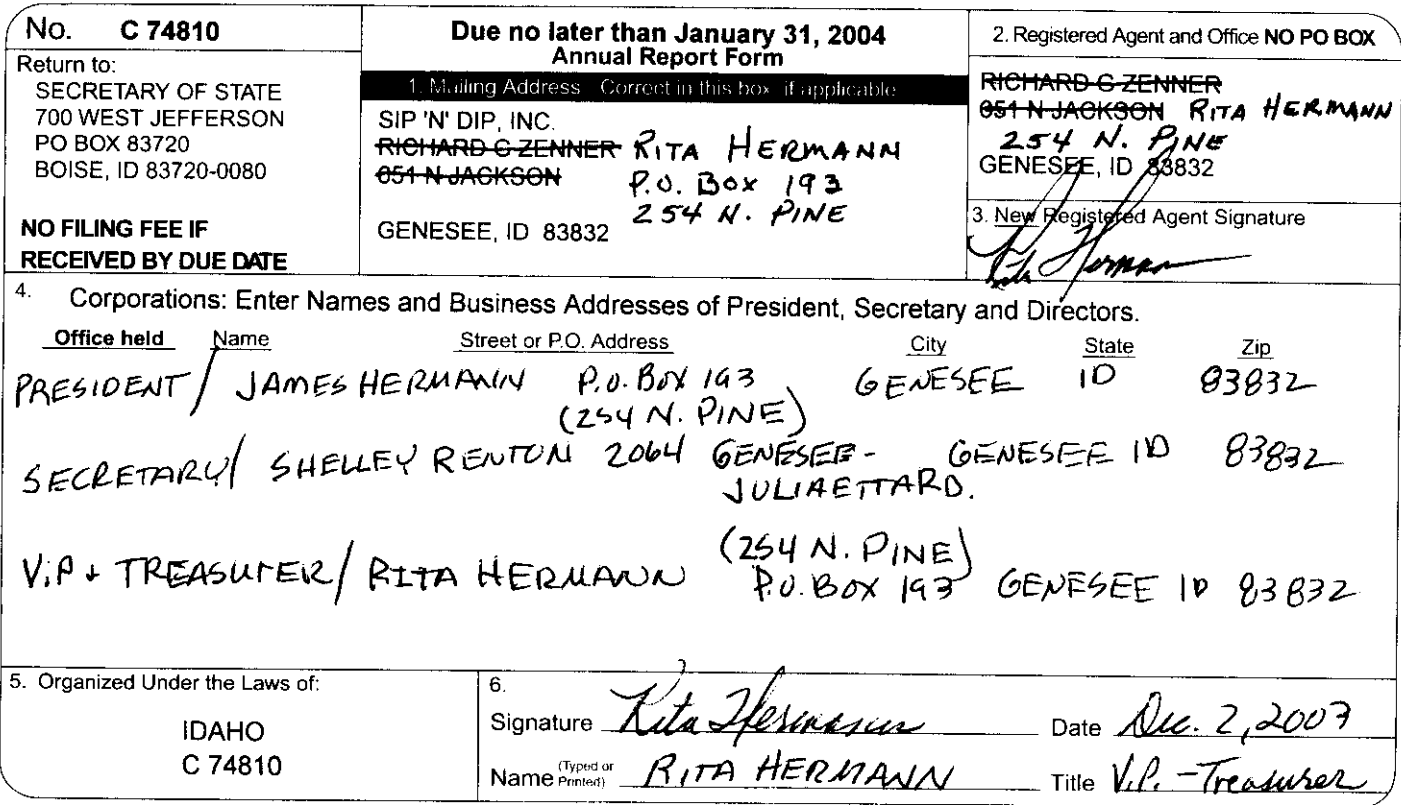 No. C 74810
Return to:
SECRETARY OF STATE
700 WEST JEFFERSON
PO BOX 83720
BOISE, ID 83720-0080
NO FILING FEE IF
RECEIVED BY DUE DATE
Due no later than January 31, 2004
Annual Report Form
1. Mailing Address Correct in this box if applicable
SIP 'N' DIP, INC.
RICHARD G ZENNER RITA HERMANN
651 N JACKSON P.O. BOX 193
254 N. PINE
GENESEE, ID 83832
2. Registered Agent and Office NO PO BOX
RICHARD G ZENNER
651 N JACKSON RITA HERMANN
254 N. PINE
GENESEE, ID 83832
3. New Registered Agent Signature
Rita Hermann
4. Corporations: Enter Names and Business Addresses of President, Secretary and Directors.
Office held Name Street or P.O. Address City State Zip
PRESIDENT / JAMES HERMANN P.O. BOX 193 GENESEE ID 83832
(254 N. PINE)
SECRETARY/ SHELLEY RENTON 2064 GENESEE- GENESEE ID 83832
JULIAETTA RD.
(254 N. PINE)
V.P + TREASURER/ RITA HERMANN P.O. BOX 193 GENESEE ID 83832
5. Organized Under the Laws of:
IDAHO
C 74810
6.
Signature Rita Hermann Date Dec. 2, 2003
Name (Typed or Printed) RITA HERMANN Title V.P. - Treasurer